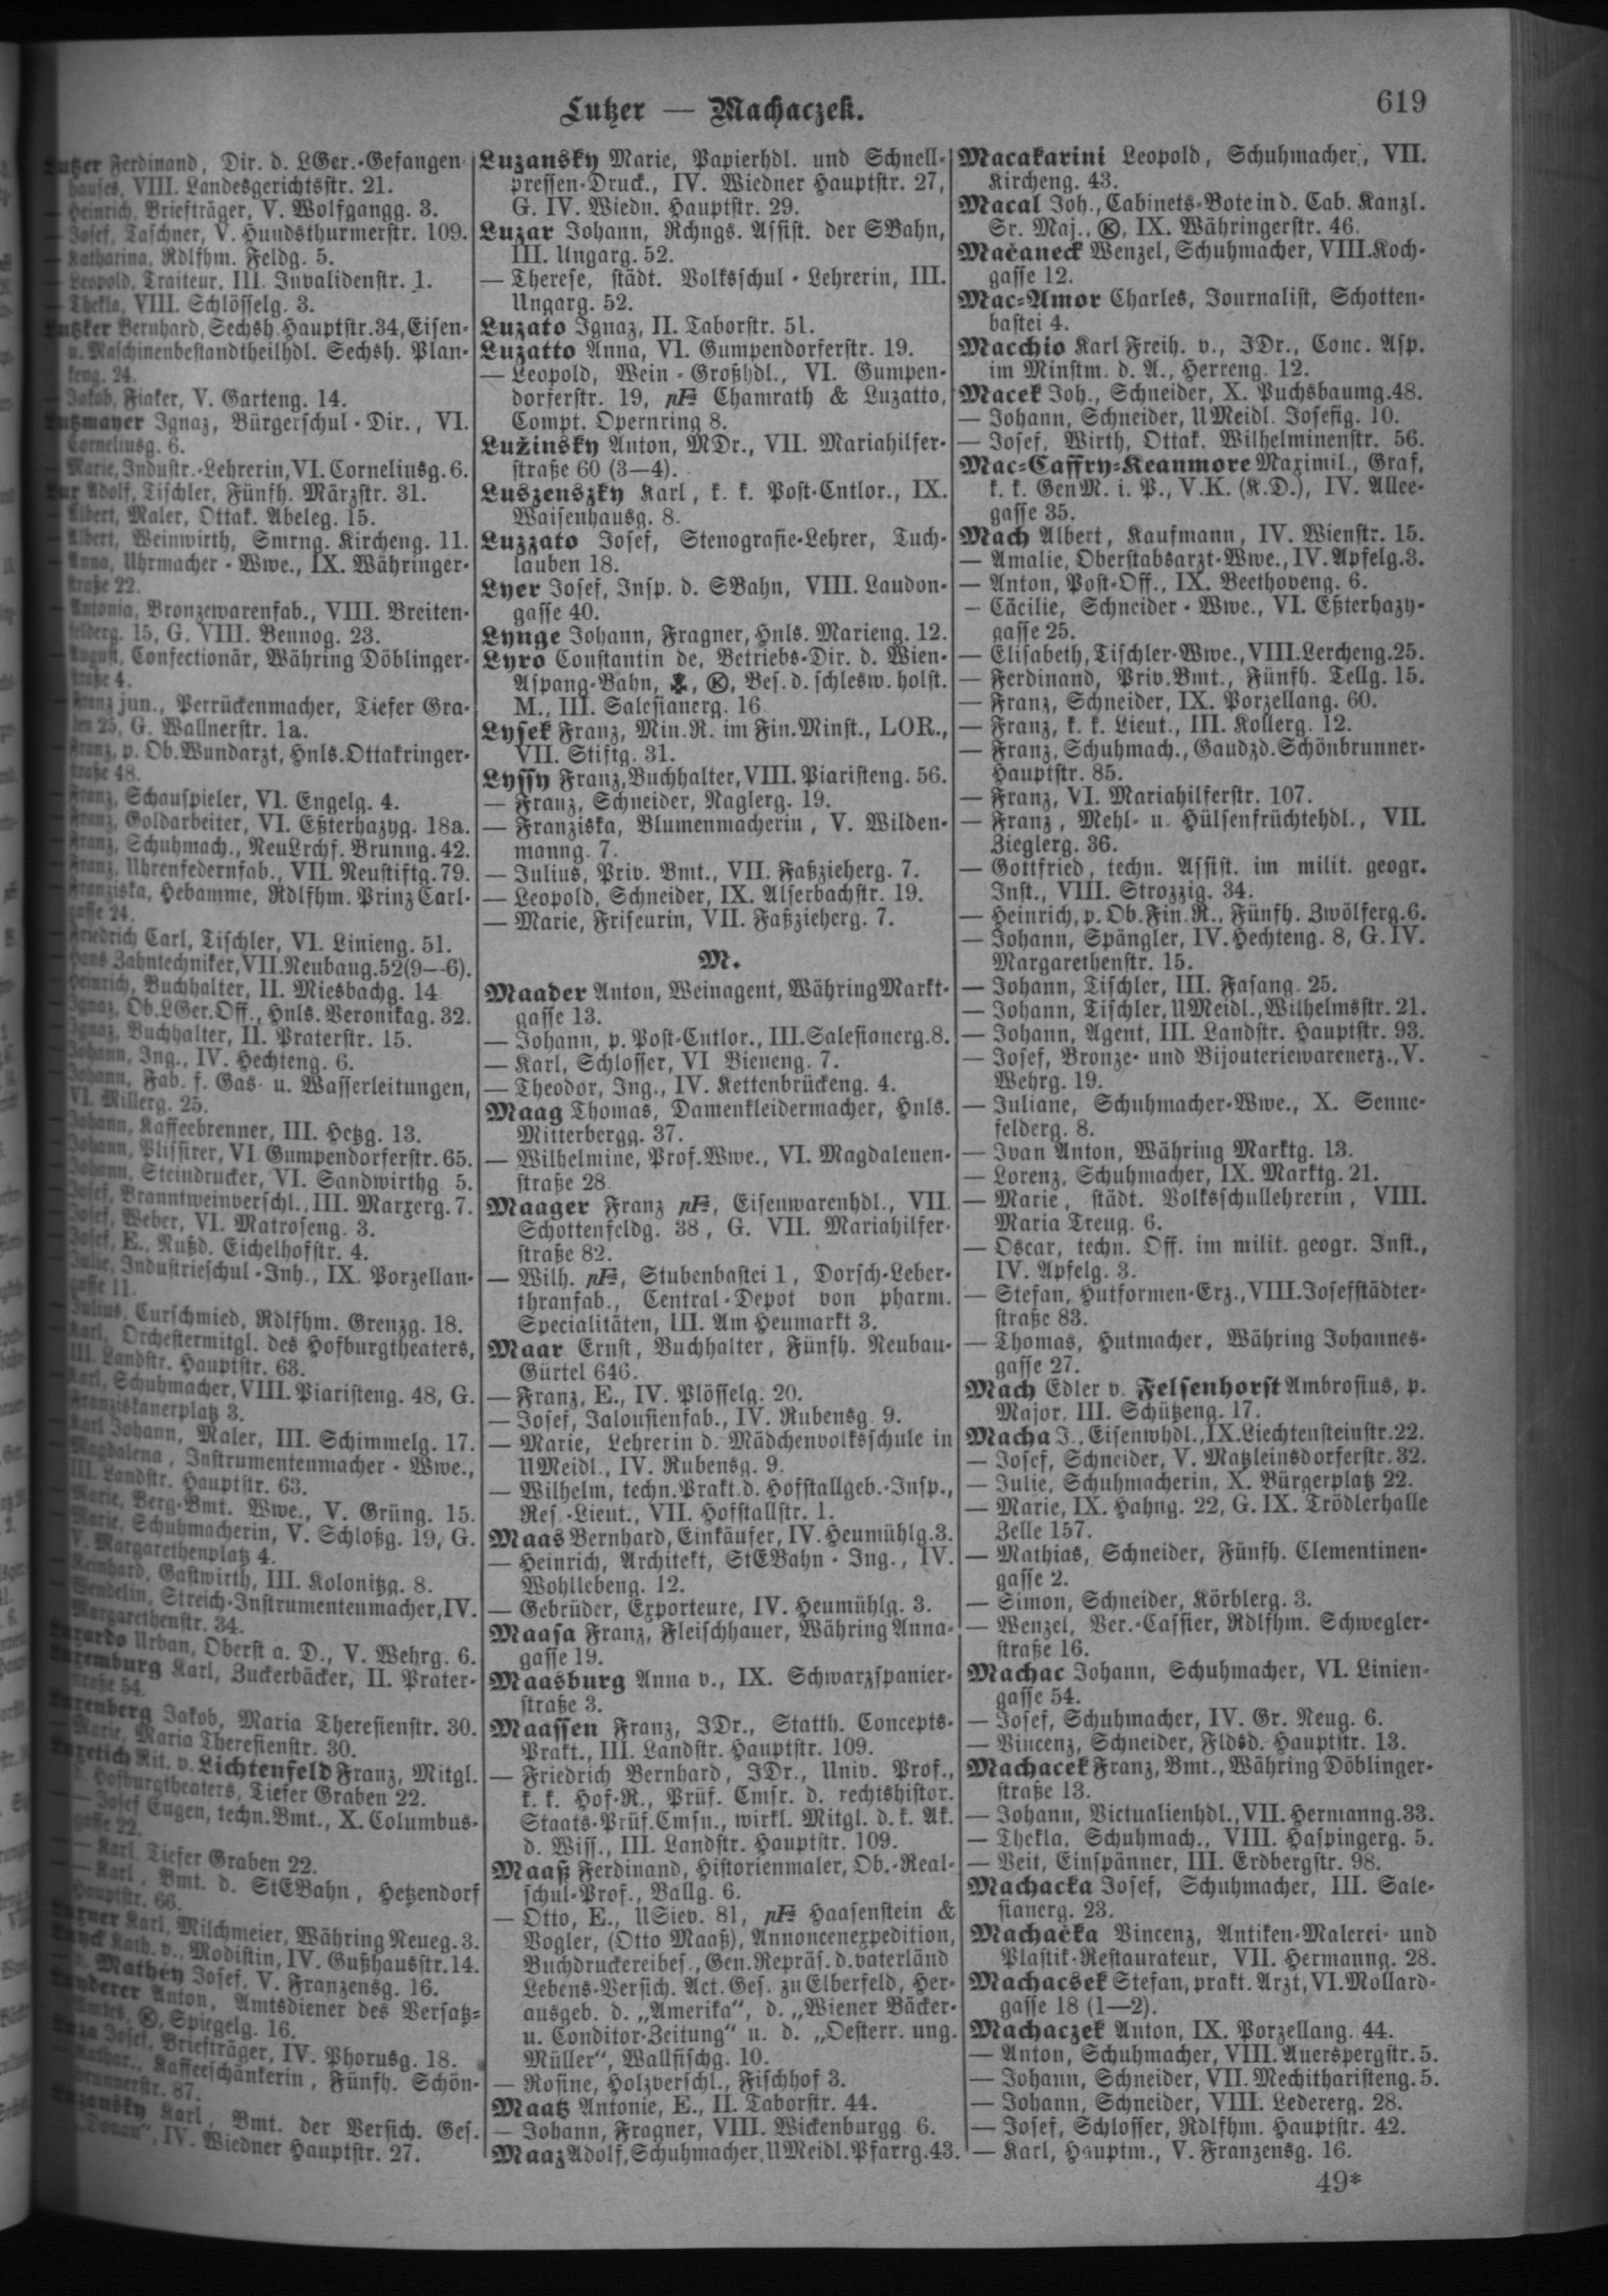 Lutzer — Machaczek.
619
Lutzer Ferdinand, Dir. d. LGer.-Gefangen-
hauses, VIII. Landesgerichtsstr. 21.
— Heinrich, Briefträger, V. Wolfgangg. 3.
— Josef, Taschner, V. Hundsthurmerstr. 109.
— Katharina, Rdlfhm. Feldg. 5.
— Leopold, Traiteur, III. Invalidenstr. 1.
— Thekla, VIII. Schlösselg. 3.
Lutzker Bernhard, Sechsh. Hauptstr. 34, Eisen-
u. Maschinenbestandtheilhdl. Sechsh. Plan-
keng. 24.
— Jakob, Fiaker, V. Garteng. 14.
Lutzmayer Ignaz, Bürgerschul-Dir., VI.
Corneliusg. 6.
— Marie, Industr.-Lehrerin, VI. Corneliusg. 6.
Lux Adolf, Tischler, Fünfh. Märzstr. 31.
— Albert, Maler, Ottak. Abeleg. 15.
— Albert, Weinwirth, Smrng. Kircheng. 11.
— Anna, Uhrmacher-Wwe., IX. Währinger-
straße 22.
— Antonia, Bronzewarenfab., VIII. Breiten-
felderg. 15, G. VIII. Bennog. 23.
— August, Confectionär, Währing Döblinger-
straße 4.
— Franz jun., Perrückenmacher, Tiefer Gra-
ben 25, G. Wallnerstr. 1a.
— Franz, p. Ob.Wundarzt, Hnls. Ottakringer-
straße 48.
— Franz, Schauspieler, VI. Engelg. 4.
— Franz, Goldarbeiter, VI. Eßterhazyg. 18a.
— Franz, Schuhmach., NeuLrchf. Brunng. 42.
— Franz, Uhrenfedernfab., VII. Neustiftg. 79.
— Franziska, Hebamme, Rdlfhm. Prinz Carl-
gasse 24.
— Friedrich Carl, Tischler, VI. Linieng. 51.
— Hans Zahntechniker, VII. Neubaug. 52 (9—6).
— Heinrich, Buchhalter, II. Miesbachg. 14
— Ignaz, Ob.LGer.Off., Hnls. Veronikag. 32.
— Ignaz, Buchhalter, II. Praterstr. 15.
— Johann, Ing., IV. Hechteng. 6.
— Johann, Fab. f. Gas- u. Wasserleitungen,
VI. Millerg. 25.
— Johann, Kaffeebrenner, III. Hetzg. 13.
— Johann, Plissirer, VI Gumpendorferstr. 65.
— Johann, Steindrucker, VI. Sandwirthg 5.
— Josef, Branntweinverschl., III. Marxerg. 7.
— Josef, Weber, VI. Matroseng. 3.
— Josef, E., Nußd. Eichelhofstr. 4.
— Julie, Industrieschul-Inh., IX. Porzellan-
gasse 11.
— Julius, Curschmied, Rdlfhm. Grenzg. 18.
— Karl, Orchestermitgl. des Hofburgtheaters,
III. Landstr. Hauptstr. 63.
— Karl, Schuhmacher, VIII. Piaristeng. 48, G.
Franziskanerplatz 3.
— Karl Johann, Maler, III. Schimmelg. 17.
— Magdalena, Instrumentenmacher-Wwe.,
III. Landstr. Hauptstr. 63.
— Marie, Berg-Bmt. Wwe., V. Grüng. 15.
— Marie, Schuhmacherin, V. Schloßg. 19, G.
V. Margarethenplatz 4.
— Reinhard, Gastwirth, III. Kolonitzg. 8.
— Wendelin, Streich-Instrumentenmacher, IV.
Margarethenstr. 34.
Luxardo Urban, Oberst a. D., V. Wehrg. 6.
Luxemburg Karl, Zuckerbäcker, II. Prater-
straße 54.
Luxenberg Jakob, Maria Theresienstr. 30.
— Marie, Maria Theresienstr. 30.
Luxetich Rit. v. Lichtenfeld Franz, Mitgl.
d. Hofburgtheaters, Tiefer Graben 22.
— — Josef Eugen, techn. Bmt., X. Columbus-
gasse 22.
— — Karl, Tiefer Graben 22.
— — Karl, Bmt. d. StEBahn, Hetzendorf
Hauptstr. 66.
Luxner Karl, Milchmeier, Währing Neueg. 3.
Luyck Kath. v., Modistin, IV. Gußhausstr. 14.
— v. Mathéy Josef, V. Franzensg. 16.
Luyderer Anton, Amtsdiener des Versatz-
Amtes, Ⓚ, Spiegelg. 16.
Luza Josef, Briefträger, IV. Phorusg. 18.
— Kathar., Kaffeeschänkerin, Fünfh. Schön-
brunnerstr. 87.
Luzansky Karl, Bmt. der Versich. Ges.
„Donau“, IV. Wiedner Hauptstr. 27.
Luzansky Marie, Papierhdl. und Schnell-
pressen-Druck., IV. Wiedner Hauptstr. 27,
G. IV. Wiedn. Hauptstr. 29.
Luzar Johann, Rchngs. Assist. der SBahn,
III. Ungarg. 52.
— Therese, städt. Volksschul-Lehrerin, III.
Ungarg. 52.
Luzato Ignaz, II. Taborstr. 51.
Luzatto Anna, VI. Gumpendorferstr. 19.
— Leopold, Wein-Großhdl., VI. Gumpen-
dorferstr. 19, pF Chamrath & Luzatto,
Compt. Opernring 8.
Lužinsky Anton, MDr., VII. Mariahilfer-
straße 60 (3—4).
Luszenszky Karl, k. k. Post-Cntlor., IX.
Waisenhausg. 8.
Luzzato Josef, Stenografie-Lehrer, Tuch-
lauben 18.
Lyer Josef, Insp. d. SBahn, VIII. Laudon-
gasse 40.
Lynge Johann, Fragner, Hnls. Marieng. 12.
Lyro Constantin de, Betriebs-Dir. d. Wien-
Aspang-Bahn, Ⓚ, Bes. d. schlesw. holst.
M., III. Salesianerg. 16
Lysek Franz, Min.R. im Fin.Minst., LOR.,
VII. Stiftg. 31.
Lyssy Franz, Buchhalter, VIII. Piaristeng. 56.
— Franz, Schneider, Naglerg. 19.
— Franziska, Blumenmacherin, V. Wilden-
manng. 7.
— Julius, Priv. Bmt., VII. Faßzieherg. 7.
— Leopold, Schneider, IX. Alserbachstr. 19.
— Marie, Friseurin, VII. Faßzieherg. 7.
M.
Maader Anton, Weinagent, Währing Markt-
gasse 13.
— Johann, p. Post-Cntlor., III. Salesianerg. 8.
— Karl, Schlosser, VI Bieneng. 7.
— Theodor, Ing., IV. Kettenbrückeng. 4.
Maag Thomas, Damenkleidermacher, Hnls.
Mitterbergg. 37.
— Wilhelmine, Prof.Wwe., VI. Magdalenen-
straße 28
Maager Franz pF, Eisenwarenhdl., VII.
Schottenfeldg. 38, G. VII. Mariahilfer-
straße 82.
— Wilh. pF, Stubenbastei 1, Dorsch-Leber-
thranfab., Central-Depot von pharm.
Specialitäten, III. Am Heumarkt 3.
Maar Ernst, Buchhalter, Fünfh. Neubau-
Gürtel 646.
— Franz, E., IV. Plösselg. 20.
— Josef, Jalousienfab., IV. Rubensg. 9.
— Marie, Lehrerin d. Mädchenvolksschule in
UMeidl., IV. Rubensg. 9.
— Wilhelm, techn. Prakt. d. Hofstallgeb.-Insp.,
Res.-Lieut., VII. Hofstallstr. 1.
Maas Bernhard, Einkäufer, IV. Heumühlg. 3.
— Heinrich, Architekt, StEBahn-Ing., IV.
Wohllebeng. 12.
— Gebrüder, Exporteure, IV. Heumühlg. 3.
Maasa Franz, Fleischhauer, Währing Anna-
gasse 19.
Maasburg Anna v., IX. Schwarzspanier-
straße 3.
Maassen Franz, JDr., Statth. Concepts-
Prakt., III. Landstr. Hauptstr. 109.
— Friedrich Bernhard, JDr., Univ. Prof.,
k. k. Hof-R., Prüf. Cmsr. d. rechtshistor.
Staats-Prüf.Cmsn., wirkl. Mitgl. d. k. Ak.
d. Wiss., III. Landstr. Hauptstr. 109.
Maaß Ferdinand, Historienmaler, Ob.-Real-
schul-Prof., Ballg. 6.
— Otto, E., USiev. 81, pF Haasenstein &
Vogler, (Otto Maaß), Annoncenexpedition,
Buchdruckereibes., Gen.Repräs. d. vaterländ
Lebens-Versich. Act. Ges. zu Elberfeld, Her-
ausgeb. d. „Amerika“, d. „Wiener Bäcker-
u. Conditor-Zeitung“ u. d. „Oesterr. ung.
Müller“, Wallfischg. 10.
— Rosine, Holzverschl., Fischhof 3.
Maatz Antonie, E., II. Taborstr. 44.
— Johann, Fragner, VIII. Wickenburgg. 6.
Maaz Adolf, Schuhmacher, UMeidl. Pfarrg. 43.
Macakarini Leopold, Schuhmacher, VII.
Kircheng. 43.
Macal Joh., Cabinets-Bote in d. Cab. Kanzl.
Sr. Maj., Ⓚ, IX. Währingerstr. 46.
Mačaneck Wenzel, Schuhmacher, VIII. Koch-
gasse 12.
Mac-Amor Charles, Journalist, Schotten-
bastei 4.
Macchio Karl Freih. v., JDr., Conc. Asp.
im Minstm. d. A., Herreng. 12.
Macek Joh., Schneider, X. Puchsbaumg. 48.
— Johann, Schneider, UMeidl. Josefig. 10.
— Josef, Wirth, Ottak. Wilhelminenstr. 56.
Mac-Caffry-Keanmore Maximil., Graf,
k. k. GenM. i. P., V.K. (K.D.), IV. Allee-
gasse 35.
Mach Albert, Kaufmann, IV. Wienstr. 15.
— Amalie, Oberstabsarzt-Wwe., IV. Apfelg. 3.
— Anton, Post-Off., IX. Beethoveng. 6.
— Cäcilie, Schneider-Wwe., VI. Eßterhazy-
gasse 25.
— Elisabeth, Tischler-Wwe., VIII. Lercheng. 25.
— Ferdinand, Priv. Bmt., Fünfh. Tellg. 15.
— Franz, Schneider, IX. Porzellang. 60.
— Franz, k. k. Lieut., III. Kollerg. 12.
— Franz, Schuhmach., Gaudzd. Schönbrunner-
Hauptstr. 85.
— Franz, VI. Mariahilferstr. 107.
— Franz, Mehl- u. Hülsenfrüchtehdl., VII.
Zieglerg. 36.
— Gottfried, techn. Assist. im milit. geogr.
Inst., VIII. Strozzig. 34.
— Heinrich, p. Ob.Fin.R., Fünfh. Zwölferg. 6.
— Johann, Spängler, IV. Hechteng. 8, G. IV.
Margarethenstr. 15.
— Johann, Tischler, III. Fasang. 25.
— Johann, Tischler, UMeidl., Wilhelmsstr. 21.
— Johann, Agent, III. Landstr. Hauptstr. 93.
— Josef, Bronze- und Bijouteriewarenerz., V.
Wehrg. 19.
— Juliane, Schuhmacher-Wwe., X. Senne-
felderg. 8.
— Ivan Anton, Währing Marktg. 13.
— Lorenz, Schuhmacher, IX. Marktg. 21.
— Marie, städt. Volksschullehrerin, VIII.
Maria Treug. 6.
— Oscar, techn. Off. im milit. geogr. Inst.,
IV. Apfelg. 3.
— Stefan, Hutformen-Erz., VIII. Josefstädter-
straße 83.
— Thomas, Hutmacher, Währing Johannes-
gasse 27.
Mach Edler v. Felsenhorst Ambrosius, p.
Major, III. Schützeng. 17.
Macha J., Eisenwhdl., IX. Liechtensteinstr. 22.
— Josef, Schneider, V. Matzleinsdorferstr. 32.
— Julie, Schuhmacherin, X. Bürgerplatz 22.
— Marie, IX. Hahng. 22, G. IX. Trödlerhalle
Zelle 157.
— Mathias, Schneider, Fünfh. Clementinen-
gasse 2.
— Simon, Schneider, Körblerg. 3.
— Wenzel, Ver.-Cassier, Rdlfhm. Schwegler-
straße 16.
Machac Johann, Schuhmacher, VI. Linien-
gasse 54.
— Josef, Schuhmacher, IV. Gr. Neug. 6.
— Vincenz, Schneider, Fldsd. Hauptstr. 13.
Machacek Franz, Bmt., Währing Döblinger-
straße 13.
— Johann, Victualienhdl., VII. Hermanng. 33.
— Thekla, Schuhmach., VIII. Haspingerg. 5.
— Veit, Einspänner, III. Erdbergstr. 98.
Machacka Josef, Schuhmacher, III. Sale-
sianerg. 23.
Machačka Vincenz, Antiken-Malerei- und
Plastik-Restaurateur, VII. Hermanng. 28.
Machacsek Stefan, prakt. Arzt, VI. Mollard-
gasse 18 (1—2).
Machaczek Anton, IX. Porzellang. 44.
— Anton, Schuhmacher, VIII. Auerspergstr. 5.
— Johann, Schneider, VII. Mechitharisteng. 5.
— Johann, Schneider, VIII. Ledererg. 28.
— Josef, Schlosser, Rdlfhm. Hauptstr. 42.
— Karl, Hauptm., V. Franzensg. 16.
49*